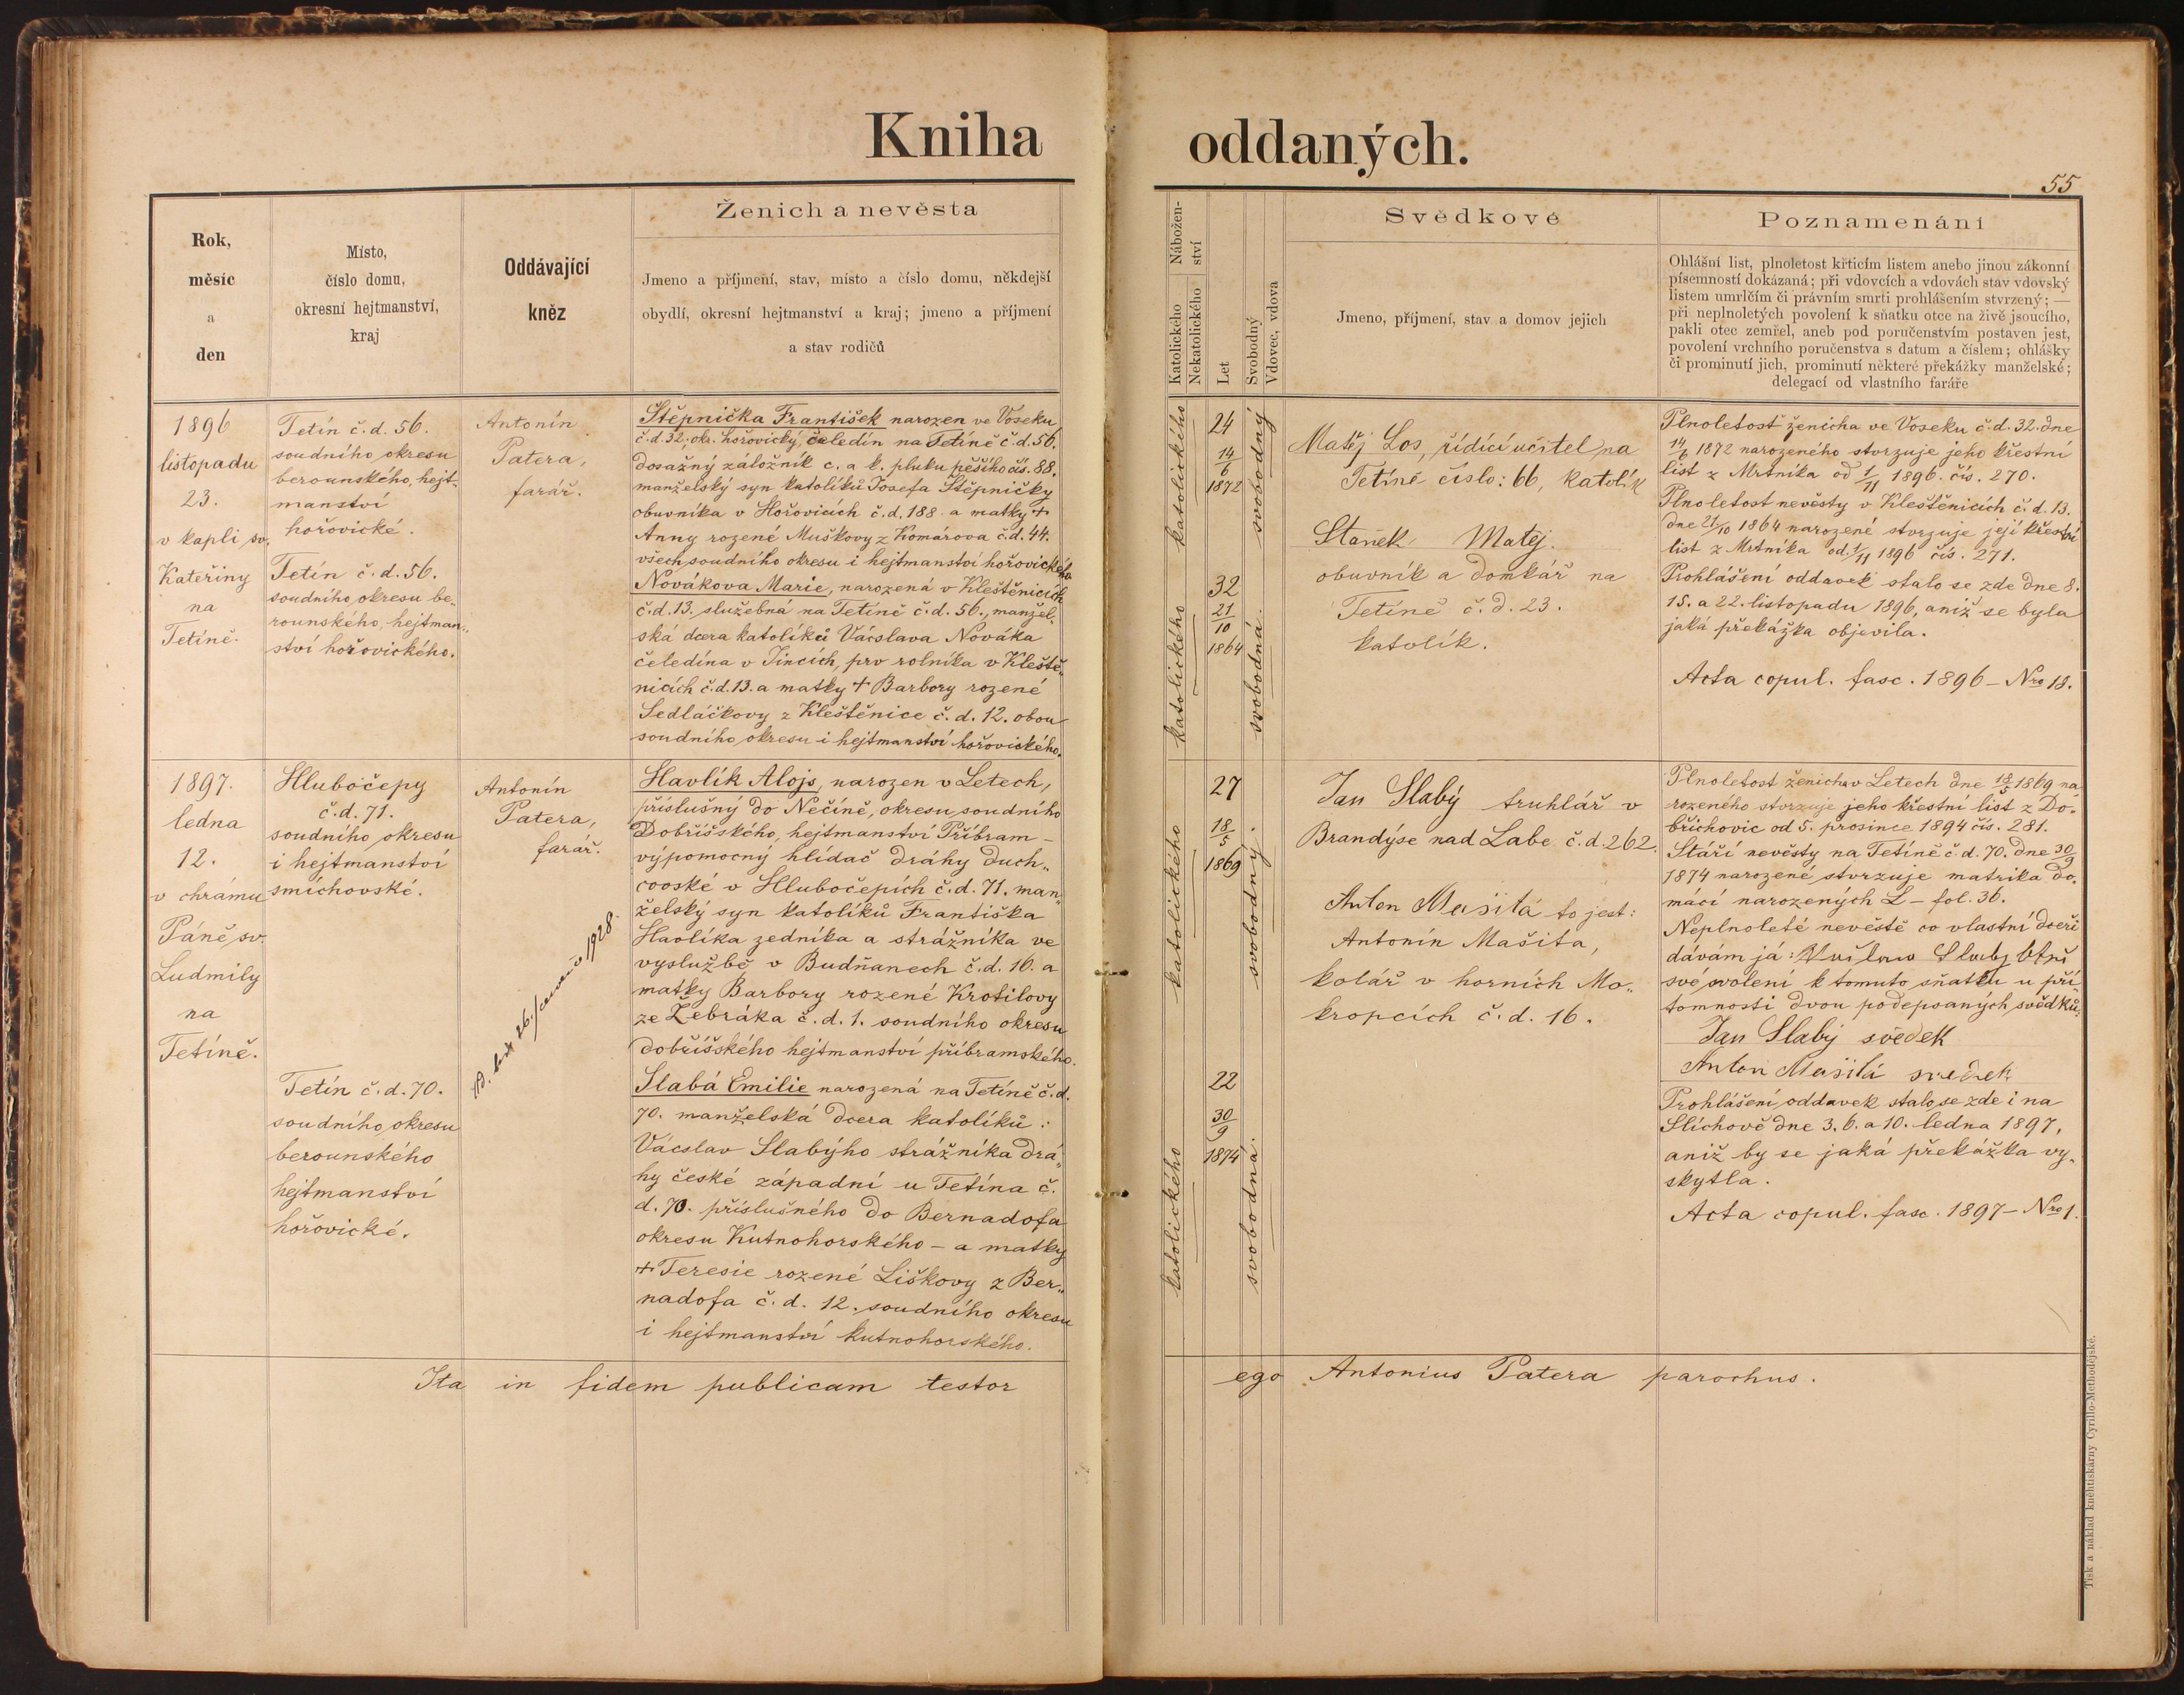 Kniha oddaných.
55
Rok,
měsíc
a
den
Místo,
číslo domu,
okresní hejtmanství,
kraj
Oddávající
kněz
Ženich a nevěsta
Jmeno a příjmení, stav, místo a číslo domu, někdejší
obydlí, okresní hejtmanství a kraj; jmeno a příjmení
a stav rodičů
Nábožen-
ství
Katolického
Nekatolického
Let
Svobodný
Vdovec, vdova
Svědkové
Jmeno, příjmení, stav a domov jejich
Poznamenání
Ohlášní list, plnoletost křticím listem anebo jinou zákonní
písemností dokázaná; při vdovcích a vdovách stav vdovský
listem umrlčím či právním smrti prohlášením stvrzený; —
při neplnoletých povolení k sňatku otce na živě jsoucího,
pakli otec zemřel, aneb pod poručenstvím postaven jest,
povolení vrchního poručenstva s datum a číslem; ohlášky
či prominutí jich, prominutí některé překážky manželské;
delegací od vlastního faráře
1896
listopadu
23.
v kapli sv.
Kateřiny
na
Tetíně.
Tetín č.d. 56.
soudního okresu
berounského, hejt-
manství
hořovické.
Tetín č.d. 56.
soudního okresu be-
rounského, hejtman-
ství hořovického.
Antonín
Patera,
farář.
Štěpnička František narozen ve Voseku
č.d. 32, okr. hořovický, čeledín na Tetíně č.d. 56.
dosažný záložník c. a k. pluku pěšího čís. 88.
manželský syn katolíků Josefa Štěpničky
obuvníka v Hořovicích č.d. 188 a matky +
Anny rozené Muškovy z Komárova č.d. 44.
všech soudního okresu i hejtmanství hořovického
Novákova Marie, narozená v Kleštěnicích
č.d. 13. služebná na Tetíně č.d. 56., manžel-
ská dcera katolíků Václava Nováka
čeledína v Jincích, prv rolníka v Kleště-
nicích č.d. 13. a matky + Barbory rozené
Sedláčkovy z Kleštěnice č.d. 12. obou
soudního okresu i hejtmanství hořovického.
katolického
24
14/6
1872
svobodný
katolického
32
21/10
1864
svobodná.
Matěj Los, řídící učitel na
Tetíně číslo: 66, katolík
Staněk Matěj.
obuvník a domkář na
Tetíně č.d. 23.
katolík.
Plnoletosť ženicha ve Voseku č.d. 32. dne
14/6 1872 narozeného stvrzuje jeho křestní
list z Mrtníka od 1/11 1896. čís. 270.
Plnoletost nevěsty v Kleštěnicích č.d. 13.
dne 21/10 1864 narozené stvrzuje její křestní
list z Mrtníka od. 1/11 1896 čís. 271.
Prohlášení oddavek stalo se zde dne 8.
15. a 22. listopadu 1896, aniž se byla
jaká překážka objevila.
Acta copul. fasc. 1896 – Nro 18.
1897.
ledna
12.
v chrámu
Páně sv.
Ludmily
na
Tetíně.
Hlubočepy
č.d. 71.
soudního okresu
i hejtmanství
smíchovské.
Tetín č.d. 70.
soudního okresu
berounského
hejtmanství
hořovické.
Antonín
Patera,
farář.
list 26./ 1928.
Havlík Alojs, narozen v Letech,
příslušný do Nečíně, okresu soudního
Dobříšského, hejtmanství Příbram –
výpomocný hlídač dráhy duch-
covské v Hlubočepích č.d. 71. man-
želský syn katolíků Františka
Havlíka zedníka a strážníka ve
vyslužbě v Budňanech č.d. 16. a
matky Barbory rozené Krotilovy
ze Žebráka č.d. 1. soudního okresu
dobříšského hejtmanství příbramského.
Slabá Emilie narozená na Tetíně č.d.
70. manželská dcera katolíků:
Václav Slabýho strážníka drá-
hy české západní u Tetína č.
d. 70. příslušného do Bernadofa
okresu Kutnohorského – a matky
+ Teresie rozené Liškovy z Ber-
nadofa č.d. 12. soudního okresu
i hejtmanství kutnohorského.
katolického
27
18/5
1869
svobodný.
katolického
22
30/9
1874
svobodná.
Jan Slabý truhlář v
Brandýse nad Labe č.d. 262.
Anton Mašitá to jest:
Antonín Mašita,
kolář v horních Mo-
kropcích č.d. 16.
Plnoletost ženicha v Letech dne 18/5 1869 na-
rozeného stvrzuje jeho křestní list z Do-
břichovic od 5. prosince 1894 čís. 281.
Stáří nevěsty na Tetíně č.d. 70. dne 30/9
1874 narozené stvrzuje matrika do-
mácí narozených L – fol. 36.
Neplnoleté nevěstě co vlastní dceři
dávám já: Slabý
své svolení k tomuto sňatku u pří-
tomnosti dvou podepsaných svědků.
Jan Slabý svědek
Anton Mašitá svedek
Prohlášení oddavek stalo se zde i na
Slíchově dne 3. 6. a 10. ledna 1897,
aniž by se jaká překážka vy-
skytla.
Acta copul. fasc. 1897 – Nro 1.
Ita in fidem publicam testor ego Antonius Patera parochus.
Tisk a náklad kněhtiskárny Cyrillo-Methodějské.